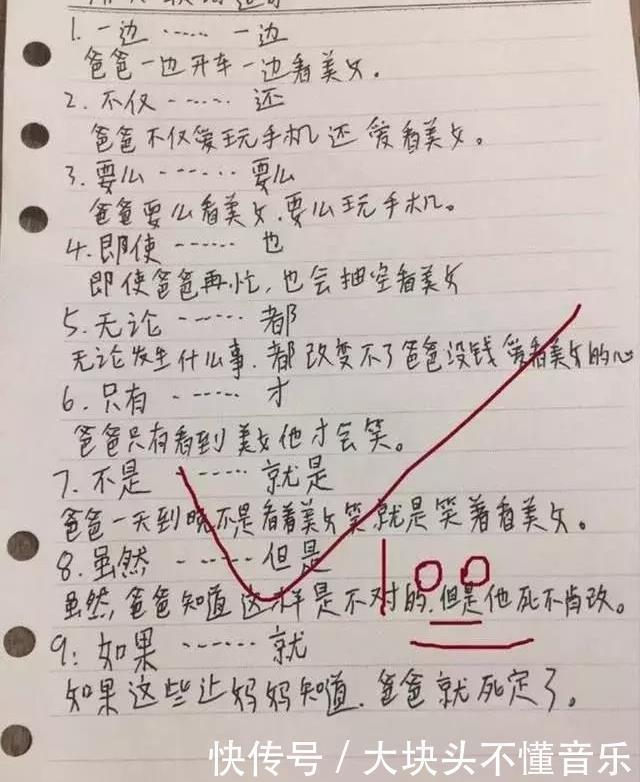 1. 一边 ······ 一边
爸爸一边开车一边看美女。
2. 不仅 ······ 还
爸爸不仅爱玩手机还爱看美女。
3. 要么 ······ 要么
爸爸要么看美女.要么玩手机。
4. 即使 ······ 也
即使爸爸再忙,也会抽空看美女
5. 无论 ······ 都
无论发生什么事.都改变不了爸爸没钱爱看美女的心
6. 只有 ······ 才
爸爸只有看到美女他才会笑。
7. 不是 ······ 就是
爸爸一天到晚不是看着美女笑就是笑着看美女。
8. 虽然 ······ 但是
100
虽然,爸爸知道这样是不对的.但是他死不肯改。
9: 如果 ······ 就
如果这些让妈妈知道.爸爸就死定了。
快传号 / 大块头不懂音乐